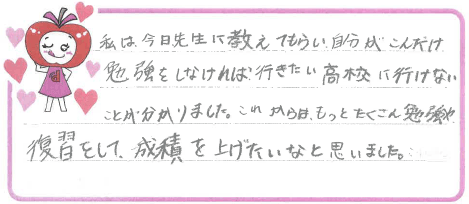 私は今日先生に教えてもらい自分がこんだけ
勉強をしなければ行きたい高校に行けない
ことが分かりました。これからは、もっとたくさん勉強や
復習をして、成績を上げたいなと思いました。